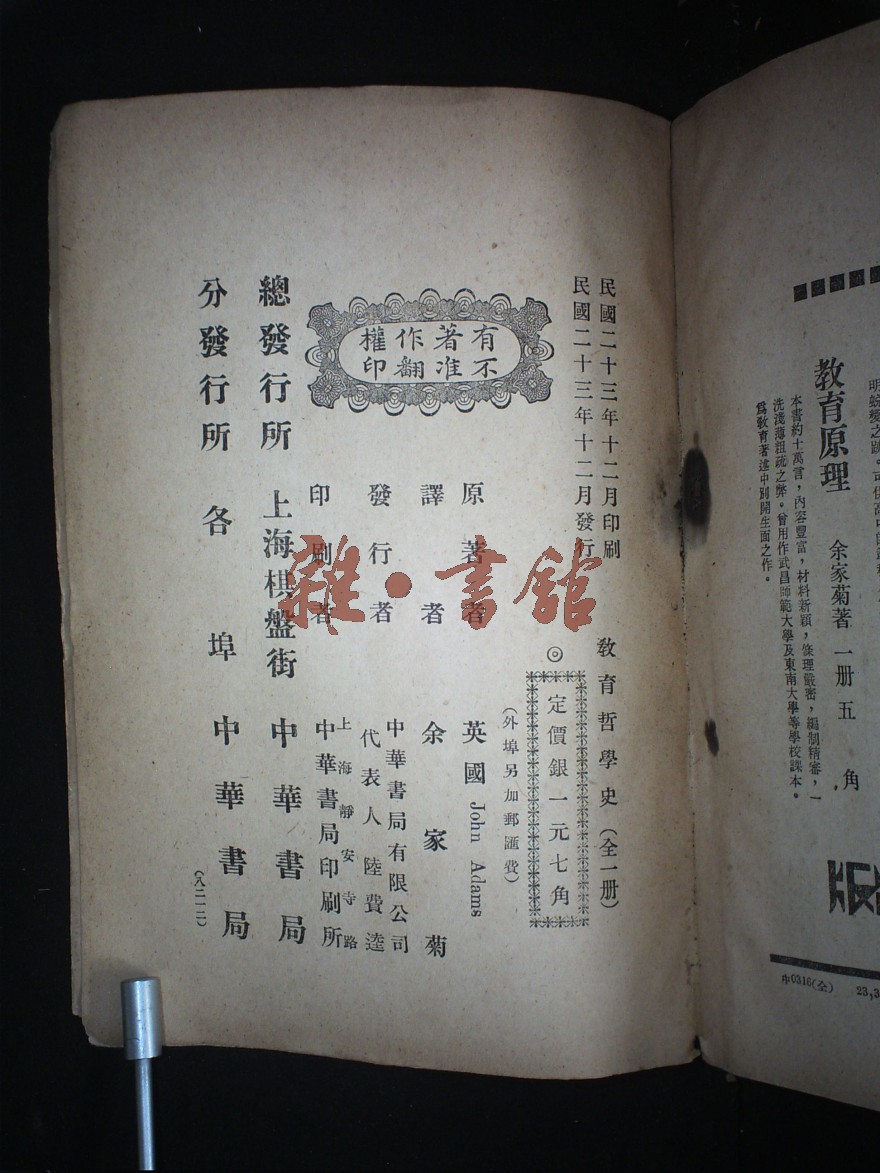 民國二十三年十二月印刷
民國二十三年十二月發行
教育哲學史（全一册）
◎定價銀一元七角
（外埠另加郵匯費）
有著作權
不准翻印
原著者 英國 John Adams
譯者 余家菊
發行者 中華書局有限公司
代表人陸費逵
印刷者 上海靜安寺路
中華書局印刷所
總發行所 上海棋盤街 中華書局
分發行所 各埠 中華書局
（八二一二）
雜·書館
教育原理 余家菊著 一册五角
本書約十萬言，內容豐富，材料新穎，條理嚴密，編制精審，一
洗淺薄粗疏之弊。曾用作武昌師範大學及東南大學等學校課本。
爲敎育著述中別開生面之作。
中0316(全) 23,3